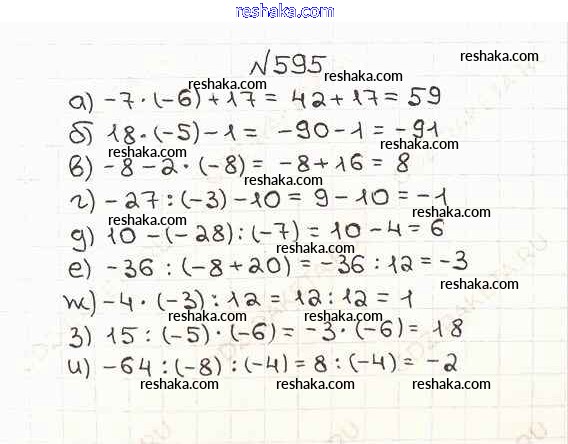 reshaka.com
№595
reshaka.com
reshaka.com
а) -7·(-6)+17= 42+17=59
reshaka.com
reshaka.com
б) 18·(-5)-1= -90-1=-91
reshaka.com
в) -8-2·(-8)= -8+16=8
reshaka.com
г) -27:(-3)-10=9-10=-1
reshaka.com
д) 10-(-28):(-7)=10-4=6
reshaka.com
reshaka.com
е) -36:(-8+20)=-36:12=-3
ж) -4·(-3):12=12:12=1
reshaka.com
reshaka.com
з) 15:(-5)·(-6)=-3·(-6)=18
reshaka.com
и) -64:(-8):(-4)=8:(-4)= -2
reshaka.com
reshaka.com